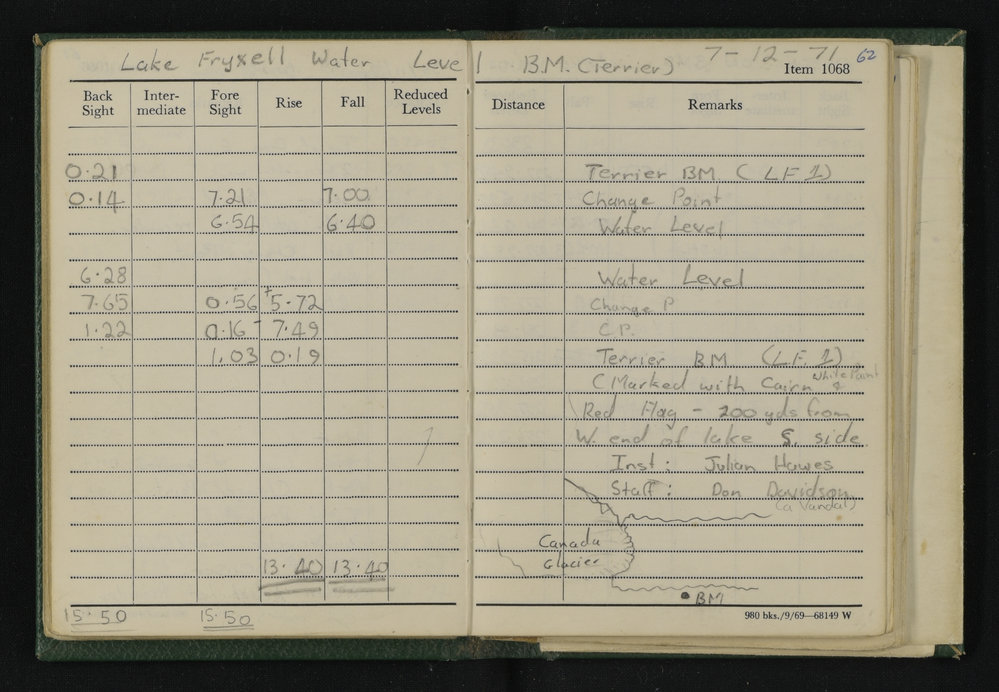 Lake Fryxell Water Level B.M. (Terrier) 7-12-71 62
Item 1068
Back Sight Inter-mediate Fore Sight Rise Fall Reduced Levels Distance Remarks
0.21 Terrier BM (LF 1)
0.14 7.21 7.00 Change Point
6.54 6.40 Water Level
6.28 Water Level
7.65 0.56 +5.72 Change P
1.22 0.16 - 7.49 C.P.
1.03 0.19 Terrier BM (LF 1)
(Marked with Cairn White Paint &
Red Flag - 200 yds from
W. end of lake S. side
Inst: Julian Hawes
Staff: Don Davidson
(a Vandal)
Canada
Glacier
13.40 13.40
BM
15.50 15.50
980 bks./9/69—68149 W